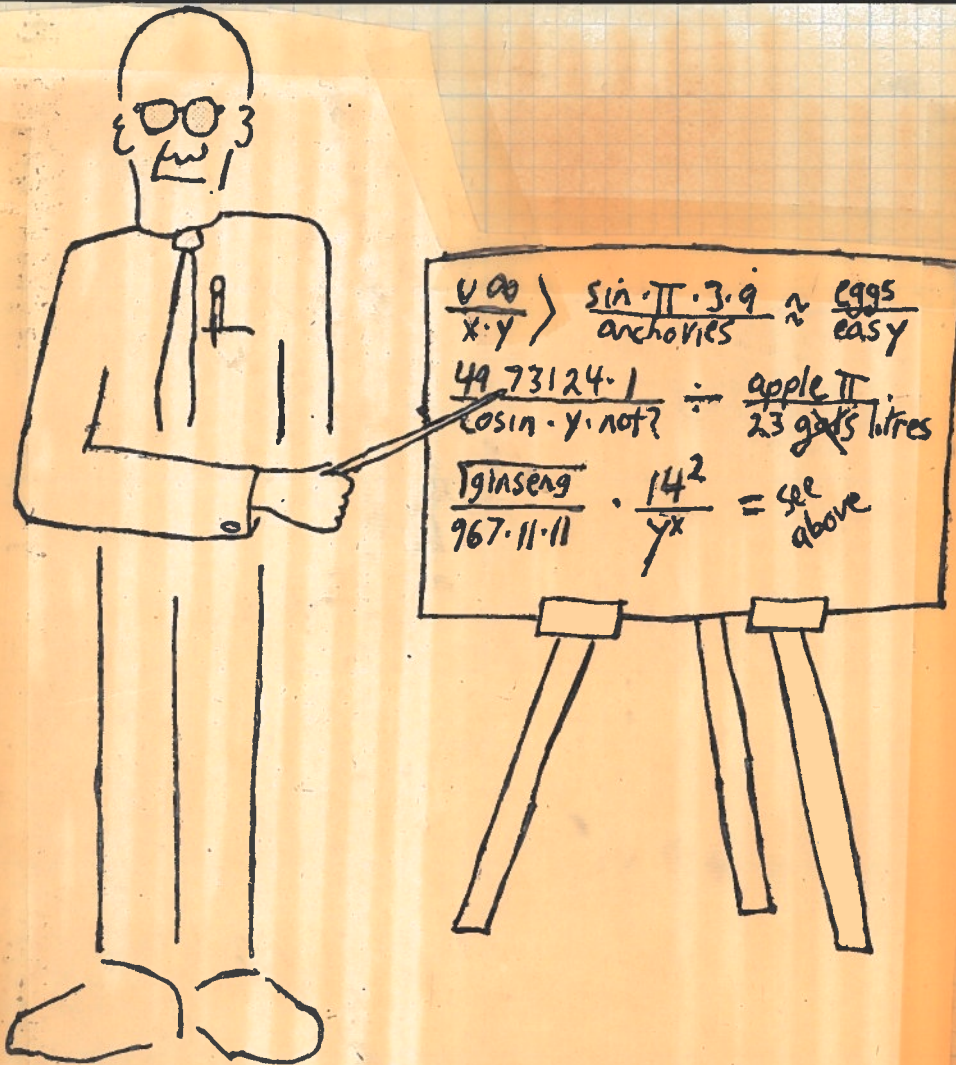 v∞/x·y > sin·π·3·9̇/anchovies ≈ eggs/easy
49 73124·1/cosin·y·not? ÷ apple π/23 gals litres
1ginseng/967·11·11 · 14²/yˣ = see above